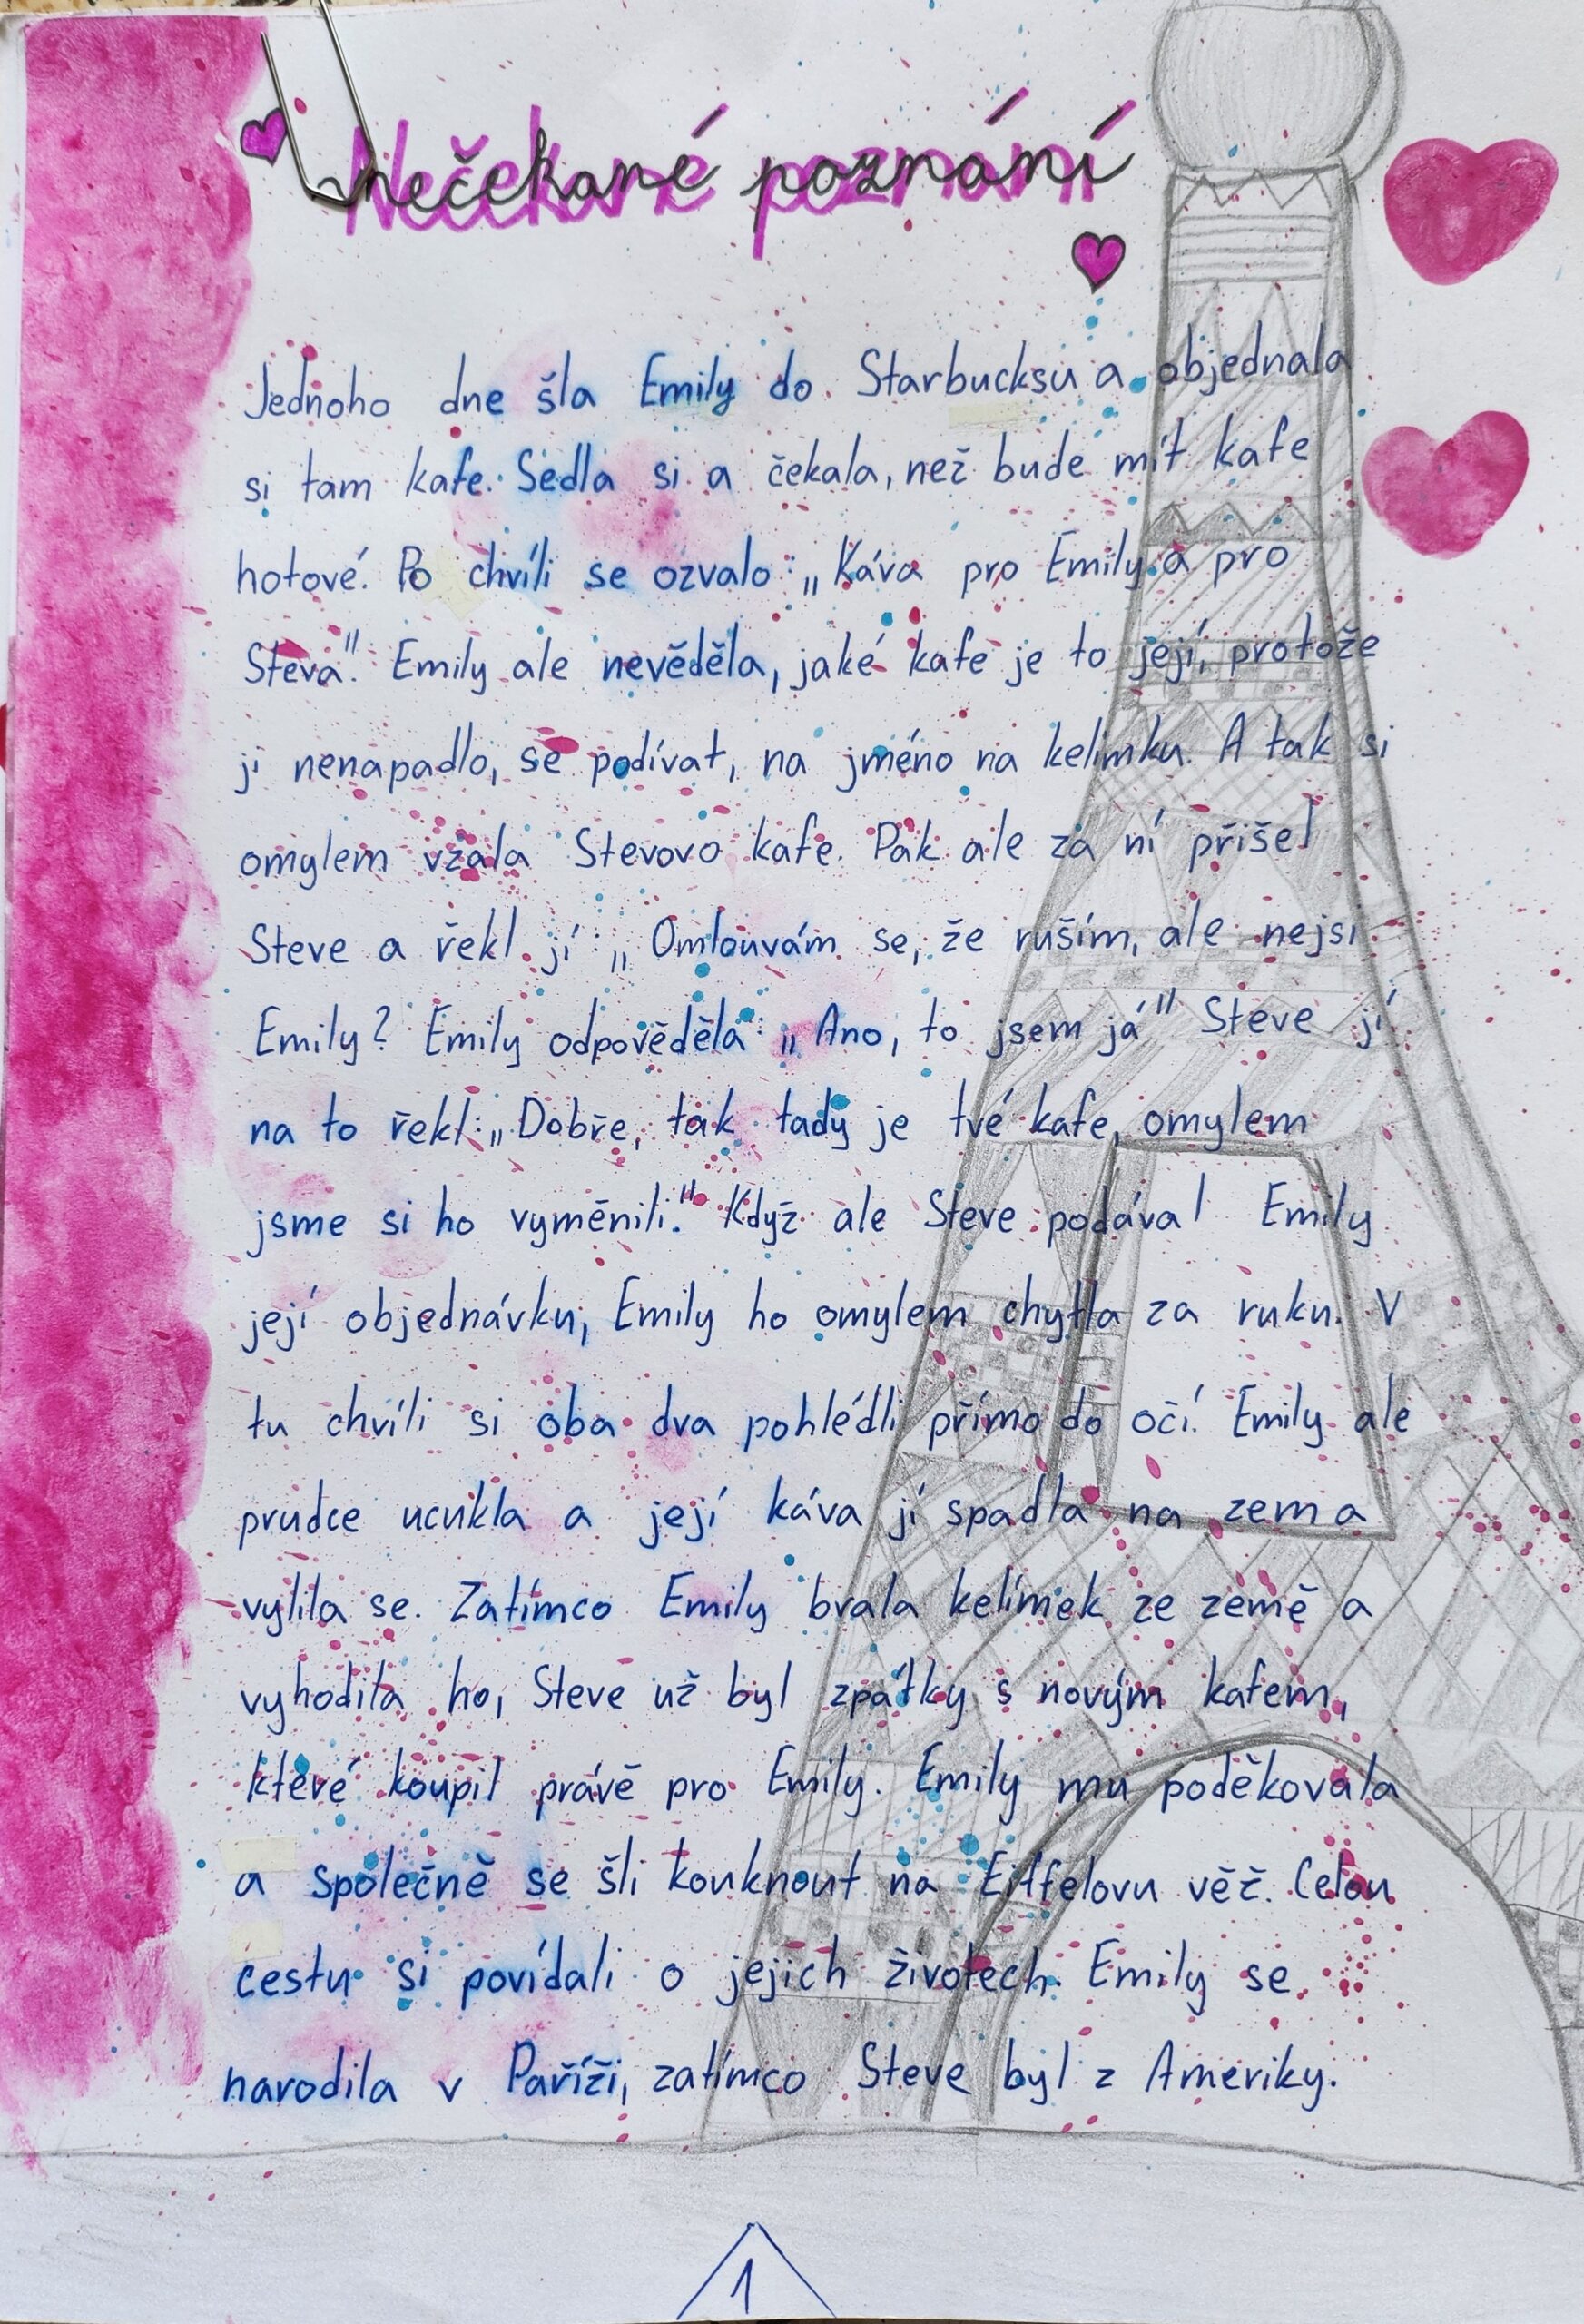 Nečekané poznání
Jednoho dne šla Emily do Starbucksu a objednala
si tam kafe. Sedla si a čekala, než bude mít kafe
hotové. Po chvíli se ozvalo: „Káva pro Emily a pro
Steva". Emily ale nevěděla, jaké kafe je to její, protože
ji nenapadlo, se podívat, na jméno na kelímku. A tak si
omylem vzala Stevovo kafe. Pak ale za ní přišel
Steve a řekl jí: „Omlouvám se, že ruším, ale nejsi
Emily? Emily odpověděla: „Ano, to jsem já" Steve jí
na to řekl: „Dobře, tak tady je tvé kafe, omylem
jsme si ho vyměnili." Když ale Steve podával Emily
její objednávku, Emily ho omylem chytla za ruku. V
tu chvíli si oba dva pohlédli přímo do očí. Emily ale
prudce ucukla a její káva jí spadla na zem a
vylila se. Zatímco Emily brala kelímek ze země a
vyhodila ho, Steve už byl zpátky s novým kafem,
které koupil právě pro Emily. Emily mu poděkovala
a společně se šli kouknout na Eiffelovu věž. Celou
cestu si povídali o jejich životech. Emily se
narodila v Paříži, zatímco Steve byl z Ameriky.
1